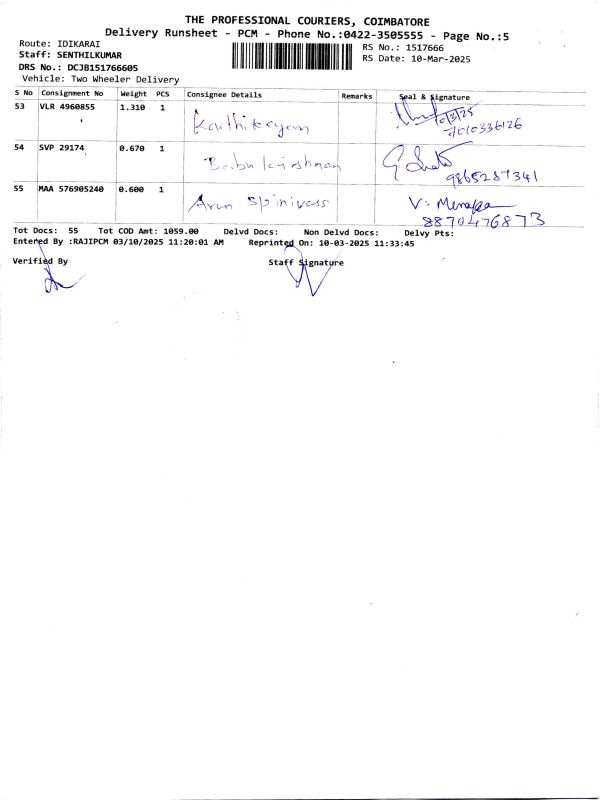 THE PROFESSIONAL COURIERS, COIMBATORE
Delivery Runsheet - PCM - Phone No.:0422-3505555 - Page No.:5
Route: IDIKARAI
Staff: SENTHILKUMAR
DRS No.: DCJB151766605
Vehicle: Two Wheeler Delivery
RS No.: 1517666
RS Date: 10-Mar-2025
S No Consignment No Weight PCS Consignee Details Remarks Seal & Signature
53 VLR 4960855 1.310 1 Karthikeyan
54 SVP 29174 0.670 1 Babu 9865287341
55 MAA 576905240 0.600 1 Arun Spinivass V. 8870476873
Tot Docs: 55 Tot COD Amt: 1059.00 Delvd Docs: Non Delvd Docs: Delvy Pts:
Entered By :RAJIPCM 03/10/2025 11:20:01 AM Reprinted On: 10-03-2025 11:33:45
Verified By Staff Signature